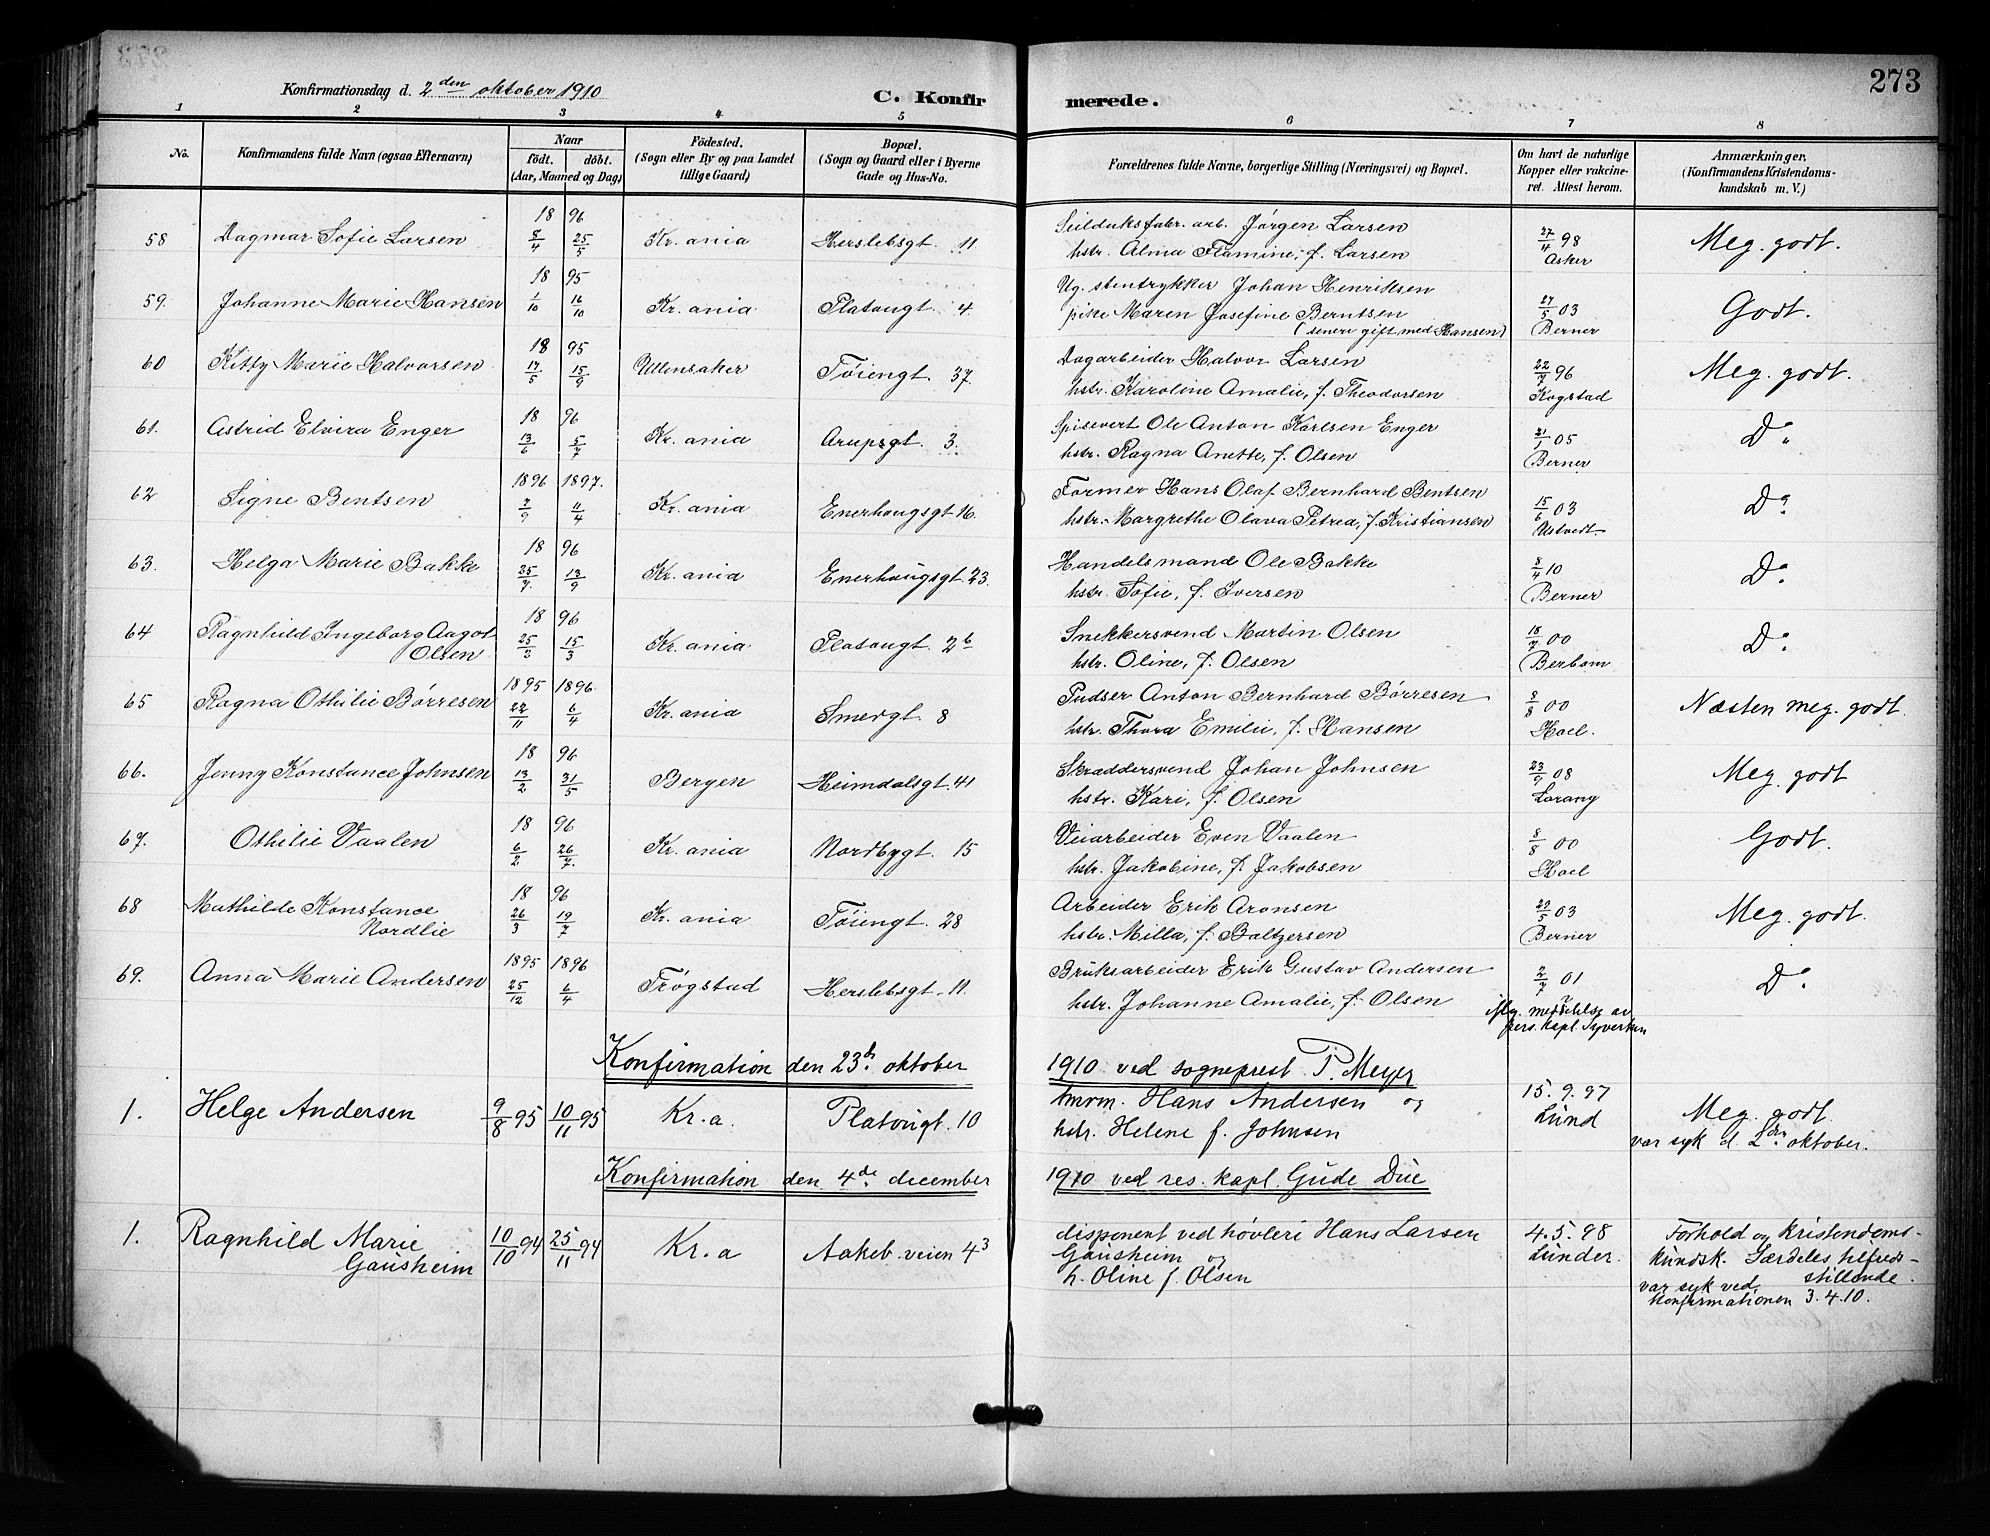 273
Konfirmationsdag d. 2den oktober 1910
C. Konfirmerede.
1 2 3 4 5 6 7 8
No.
Konfirmandens fulde Navn (ogsaa Efternavn)
Naar
födt. döbt.
(Aar, Maaned og Dag)
Födested.
(Sogn eller By og paa Landet
tillige Gaard)
Bopæl.
(Sogn og Gaard eller i Byerne
Gade og Hus-No.
Forældrenes fulde Navne, borgerlige Stilling (Næringsvei) og Bopæl.
Om havt de naturlige
Kopper eller vakcine-
ret. Attest herom.
Anmærkninger.
(Konfirmandens Kristendoms-
kundskab m. V.)
58 Dagmar Sofie Larsen 18 96 8/4 25/5 Kr.ania Herslebsgt. 11 Seilduksfabr. arb. Jørgen Larsen
hstr. Alma Flamine, f. Larsen 27/4 98 Asker Meg. godt.
59. Johanne Marie Hansen 18 95 1/10 16/10 Kr.ania Platougt 4 Ug. stentrykker Johan Henriksen
pike Maren Josefine Berntsen
(senere gift med Hansen) 27/5 03 Berner Godt.
60 Kitty Marie Halvorsen 18 95 17/5 15/9 Ullensaker Tøiengt. 37 Dagarbeider Halvor Larsen
hstr. Karoline Amalie, f. Theodorsen 22/7 96 Kogstad Meg. godt.
61. Astrid Elvira Enger 18 96 13/6 5/7 Kr.ania Arupsgt. 3. Spisevert Ole Anton Karlsen Enger
hstr. Ragna Anette, f. Olsen 21/1 05 Berner Do
62 Signe Bentsen 1896 1897. 7/9 11/4 Kr.ania Enerhaugsgt 16. Former Hans Olaf Bernhard Bentsen
hstr. Margrethe Olava Petrea, f. Kristiansen 15/6 03 Ustvedt Do
63. Helga Marie Bakke 18 96 25/7. 13/9 Kr.ania Enerhaugsgt. 23. Handelsmand Ole Bakke
hstr. Sofie, f. Iversen 8/4 10 Berner Do
64 Ragnhild Ingeborg Aagot
Olsen 18 96 25/2 15/3 Kr.ania Platougt. 2b Snekkersvend Martin Olsen
hstr. Oline, f. Olsen 18/7 00 Berbom Do
65 Ragna Othilie Børresen 1895 1896. 22/11 6/4 Kr.ania Smedgt. 8 Pudser Anton Bernhard Børresen
hstr. Thora Emilie, f. Hansen 8/8 00 Hoel. Næsten meg. godt
66. Jenny Konstance Johnsen 18 96 13/2 31/5 Bergen Heimdalsgt. 41 Skræddersvend Johan Johnsen
hstr. Kari, f. Olsen 23/9 08 Lorang Meg. godt
67. Othilie Vaalen 18 96 6/2 26/7. Kr.ania Nordbygt. 15 Veiarbeider Even Vaalen
hstr. Jakobine, f. Jakobsen 8/8 00 Hoel Godt.
68 Mathilde Konstance
Nordlie 18 96 26/3 19/7 Kr.ania Tøiengt. 28 Arbeider Erik Aronsen
hstr. Milla, f. Baltzersen 29/5 03 Berner Meg. godt.
69. Anna Marie Andersen 1895 1896 25/12 6/4 Trøgstad Herslebsgt. 11. Bruksarbeider Erik Gustav Andersen
hstr. Johanne Amalie, f. Olsen 2/7 01 Do
meddelelse av
pers. kapl. Syvertsen
Konfirmation den 23d. oktober 1910 ved sogneprest P. Meyer
1. Helge Andersen 9/8 95 10/11 95 Kr.a. Platougt. 10 tmrm. Hans Andersen og
hstr. Helene f. Johnsen 15.9.97 Lund Meg. godt.
var syk d. 2den oktober.
Konfirmation den 4de december 1910 ved res. kapl. Gude Due
1. Ragnhild Marie
Gausheim 10/10 94 25/11 94 Kr.a Aakeb.veien 43 disponent ved høvleri Hans Larsen
Gausheim og
h. Oline f. Olsen 4.5.98 Lunder. Forhold og kristendoms-
kundsk. Særdeles tilfreds-
stillende.
var syk ved
konfirmationen 3.4.10.